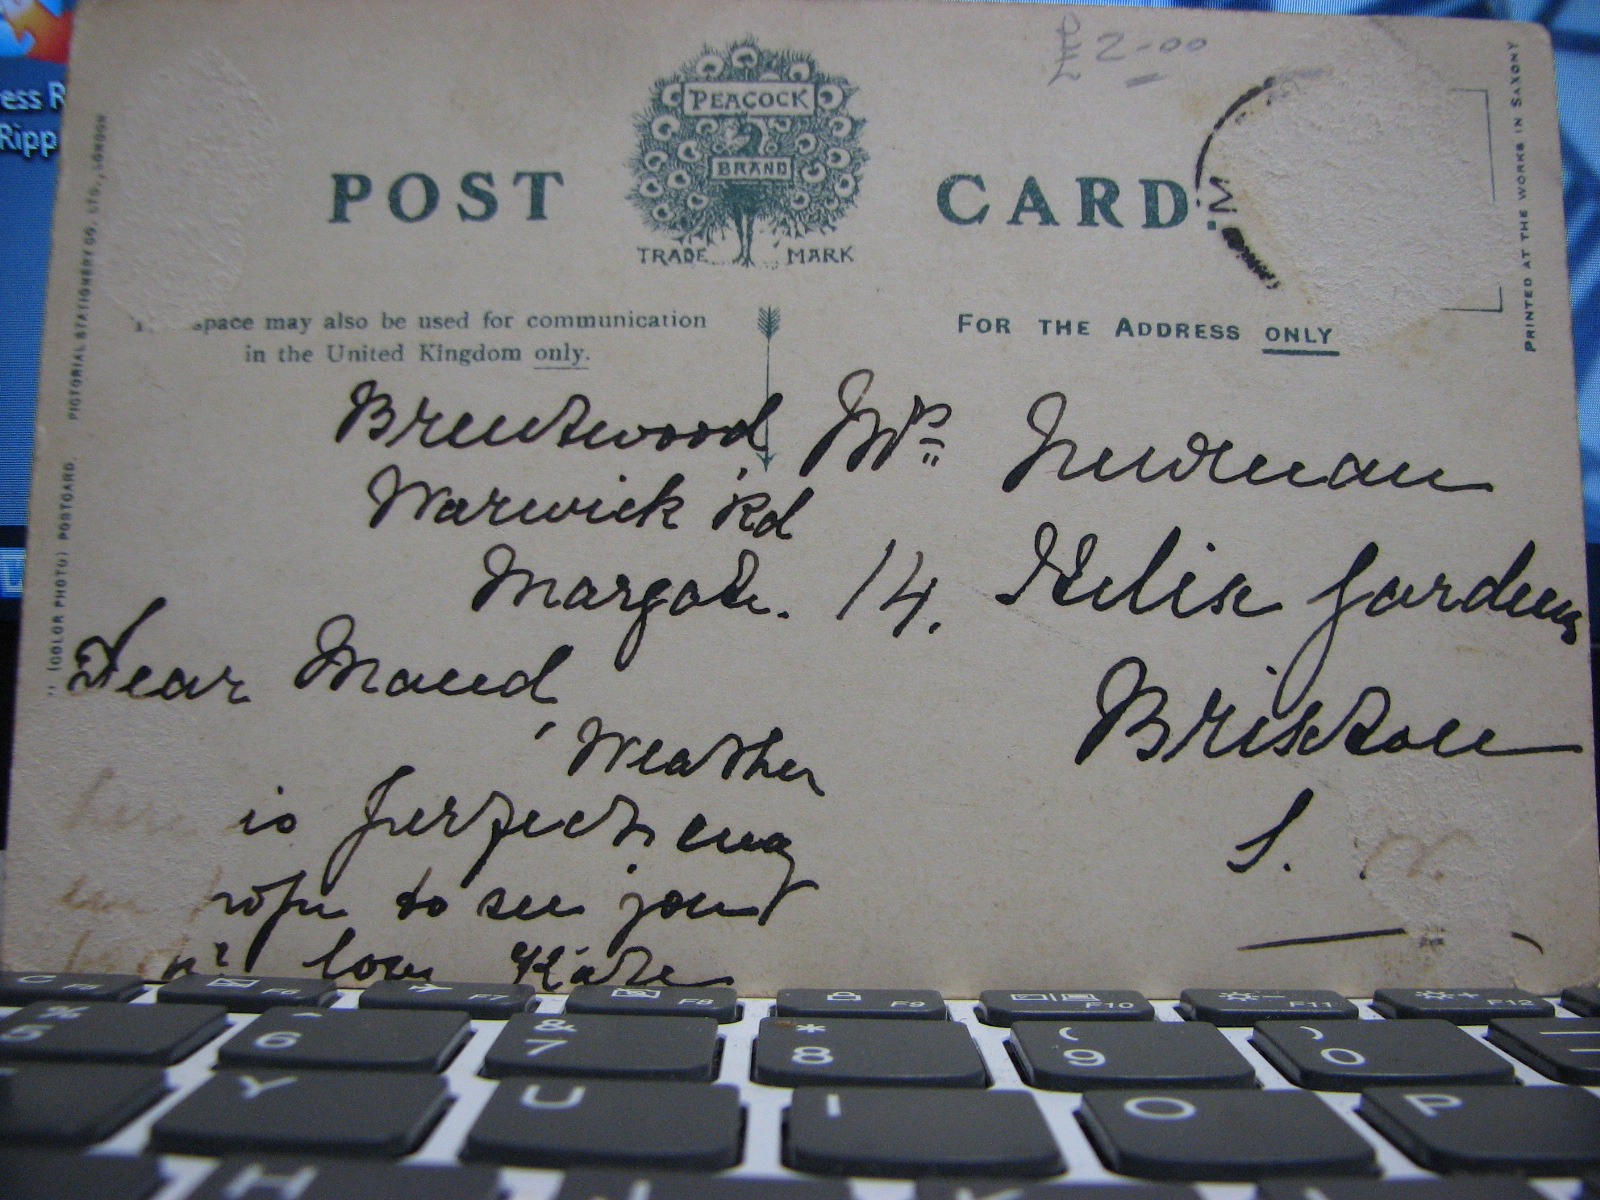 £2-00
PEACOCK
BRAND
POST CARD
TRADE MARK
space may also be used for communication
in the United Kingdom only.
FOR THE ADDRESS ONLY
PICTORIAL STATIONERY CO., LTD., LONDON
(COLOR PHOTO) POSTCARD.
PRINTED AT THE WORKS IN SAXONY
Brentwood
Warwick Rd
Margate.
Dear Maud
Weather
here is perfect
hope to see you
love Kate
Mrs Newman
14. Helix Gardens
Brixton
S.
ess R
Ripp
F6
F7
F8
F9
F10
F11
F12
5
^
6
&
7
*
8
(
9
)
0
Y
U
I
O
P
H